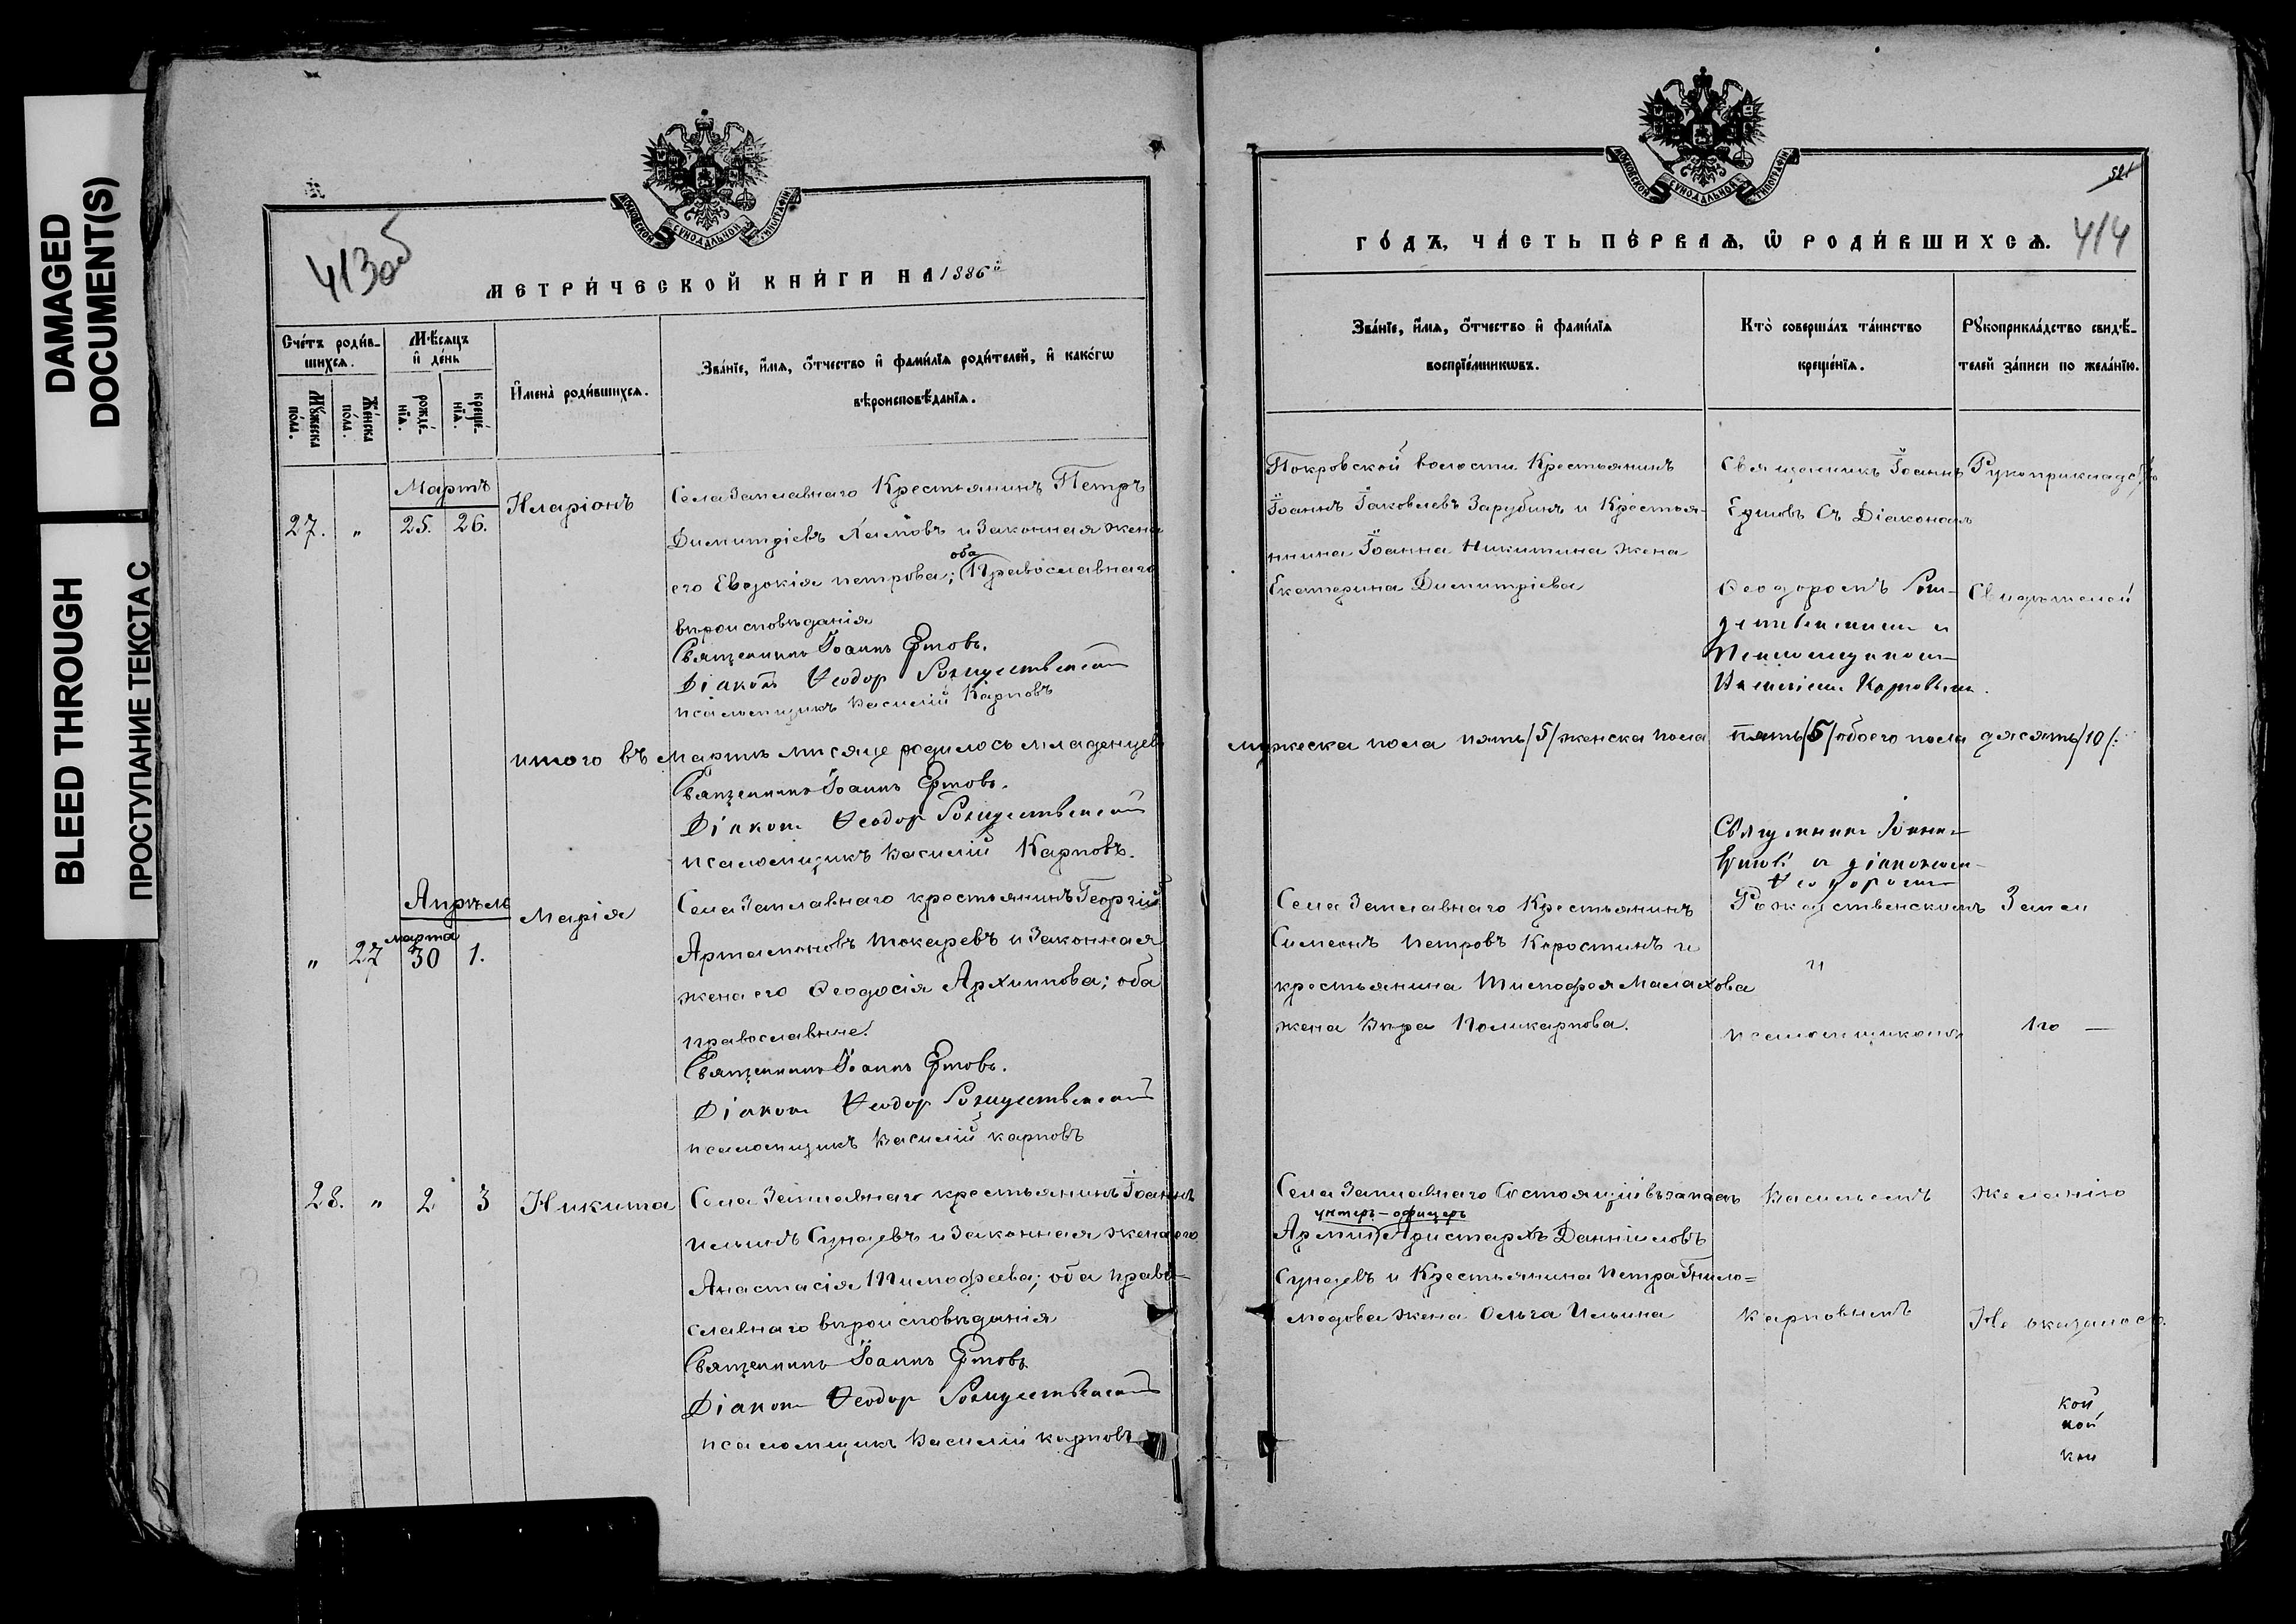 DAMAGED
DOCUMENT(S)
BLEED THROUGH
ПРОСТУПАНИЕ ТЕКСТА С
МОСКОВСКОЙ СУНОДАЛЬНОЙ ТИПОГРАФІИ
413об
МЕТРИ́ЧЕСКОЙ КНИ́ГИ НА 1886й
Сче́тъ роди́в-
шихся.
Мѣ́сяцъ
и҆ де́нь
Мꙋ́жеска
по́ла.
Же́нска
по́ла.
рожде́-
нїя.
креще́-
нїя.
И҆мена̀ роди́вшихся.
Зва́нїе, и҆́мя, ѻ҆́тчество и҆ фами́лїя роди́телей, и҆ како́гѡ
вѣроисповѣ́данїя.
Мартъ
27. " 25. 26.
Иларіонъ
Села Заплавнаго Крестьянинъ Петръ
Димитріевъ и Законная жена
его Евдокія петрова; оба Православнаго
вѣроисповѣданія
Священникъ Іоаннъ Ертовъ.
Діаконъ Ѳеодор Рождественскій
псаломщикъ Василій Карповъ
итого въ мартѣ мѣсяце родилось младенцевъ
Священникъ Іоаннъ Ертовъ.
Діаконъ Ѳеодор Рождественскій
псаломщикъ Василій Карповъ.
Апрѣль
марта
" 27 30 1.
Марія
Села Заплавнаго крестьянинъ Георгій
Артамоновъ Токаревъ и Законная
жена его Ѳеодосія Архиппова; оба
православные.
Священникъ Іоаннъ Ертовъ.
Діаконъ Ѳеодор Рождественскій
псаломщикъ Василій карповъ
28. " 2 3 Никита
Села Заплавнаго крестьянинъ Іоаннъ
Ильинъ Сундевъ и Законная жена его
Анастасія Тимофеева; оба право-
славнаго вѣроисповѣданія
Священникъ Іоаннъ Ертовъ
Діаконъ Ѳеодор Рождественскій
псаломщикъ Василій карповъ
МОСКОВСКОЙ СУНОДАЛЬНОЙ ТИПОГРАФІИ
ГО́ДЪ, ЧА́СТЬ ПЕ́РВАЯ, Ѡ҆ РОДИ́ВШИХСЯ. 414
Зва́нїе, и҆́мя, ѻ҆́тчество и҆ фами́лїя
воспрїе́мникѡвъ.
Кто̀ соверша́лъ та́инство
креще́нїя.
Рꙋкоприкла́дство свидѣ́-
телей за́писи по жела́нїю.
Покровской волости Крестьянинъ
Іоаннъ Іаковлевъ Зарубинъ и Крестья-
нина Іоанна Никитина жена
Екатерина Димитріева
Священникъ Іоаннъ
Ертовъ Съ Діакономъ
Ѳеодоромъ Рож-
дественскимъ и
Псаломщикомъ
Василіемъ Карповымъ.
Рукоприкладство
Свидѣтелей
мужеска пола пять/5/ женска пола пять/5/ обоего пола десять/10/:
Священникъ Іоаннъ
Ертовъ съ діакономъ
Ѳеодоромъ
Рождественскимъ
и
псаломщикомъ
Села Заплавнаго Крестьянинъ
Симеонъ Петровъ Коростинъ и
крестьянина Тимофея Малахова
жена Вѣра Поликарпова.
Записи
по —
Села Заплавнаго Состоящій въ запасѣ
унтеръ-офицеръ
Арміи Аристархъ Данніиловъ
Сундевъ и Крестьянина Петра Гнило=
медова жена Ольга Ильина
Васильемъ
Карповымъ
желанію
Не оказалось.
кой
кой
кои